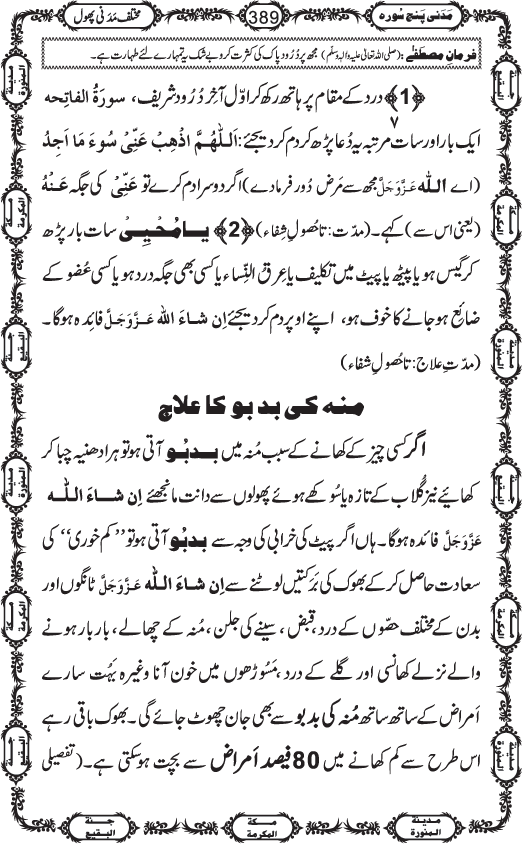 مَدَنی پَنج سُورہ
389
مختلف مَدَنی پھول
فرمانِ مصطَفٰے: (صلی اللہ تعالیٰ علیہ واٰلہٖ وسلّم) مجھ پر دُرُود پاک کی کثرت کرو بے شک یہ تمہارے لئے طہارت ہے۔
﴿1﴾ درد کے مقام پر ہاتھ رکھ کر اوّل آخر دُرُود شریف، سورۃُ الفاتِحہ
ایک بار اور سات ۷ مرتبہ یہ دُعا پڑھ کر دم کر دیجئے: اَللّٰھُمَّ اذْھِبْ عَنِّیْ سُوءَ مَا اَجِدُ
(اے اللہ عَزَّوَجَلَّ مجھ سے مَرض دُور فرما دے) اگر دوسرا دم کرے تو عَنِّیْ کی جگہ عَنْہُ
(یعنی اس سے) کہے۔ (مدّت: تا حُصولِ شِفاء) ﴿2﴾ یَا مُحْیِیْ سات بار پڑھ
کر گیس ہو یا پیٹھ یا پیٹ میں تکلیف یا عِرقُ النِّساء یا کسی بھی جگہ درد ہو یا کسی عُضو کے
ضائِع ہو جانے کا خوف ہو، اپنے اوپر دم کر دیجئے اِن شاءَ اللہ عَزَّوَجَلَّ فائدہ ہوگا۔
(مدّتِ علاج: تا حُصولِ شفاء)
منہ کی بدبو کا علاج
اگر کسی چیز کے کھانے کے سبب مُنہ میں بدبُو آتی ہو تو ہرا دھنیہ چبا کر
کھائیے نیز گُلاب کے تازہ یا سُوکھے ہوئے پھولوں سے دانت مانجھئے اِن شاءَ اللہ
عَزَّوَجَلَّ فائدہ ہوگا۔ ہاں اگر پیٹ کی خرابی کی وجہ سے بدبُو آتی ہو تو ”کم خوری“ کی
سعادت حاصل کر کے بھوک کی بَرَکتیں لوٹنے سے اِن شاءَ اللہ عَزَّوَجَلَّ ٹانگوں اور
بدن کے مختلف حصّوں کے درد، قبض، سینے کی جلن، مُنہ کے چھالے، بار بار ہونے
والے نزلے کھانسی اور گلے کے درد، مَسُوڑھوں میں خون آنا وغیرہ بہُت سارے
اَمراض کے ساتھ ساتھ مُنہ کی بدبو سے بھی جان چھوٹ جائے گی۔ بھوک باقی رہے
اس طرح سے کم کھانے میں 80 فیصد اَمراض سے بچت ہو سکتی ہے۔ (تفصیلی
مدینۃ المنورۃ
مکۃ المکرمۃ
جنۃ البقیع